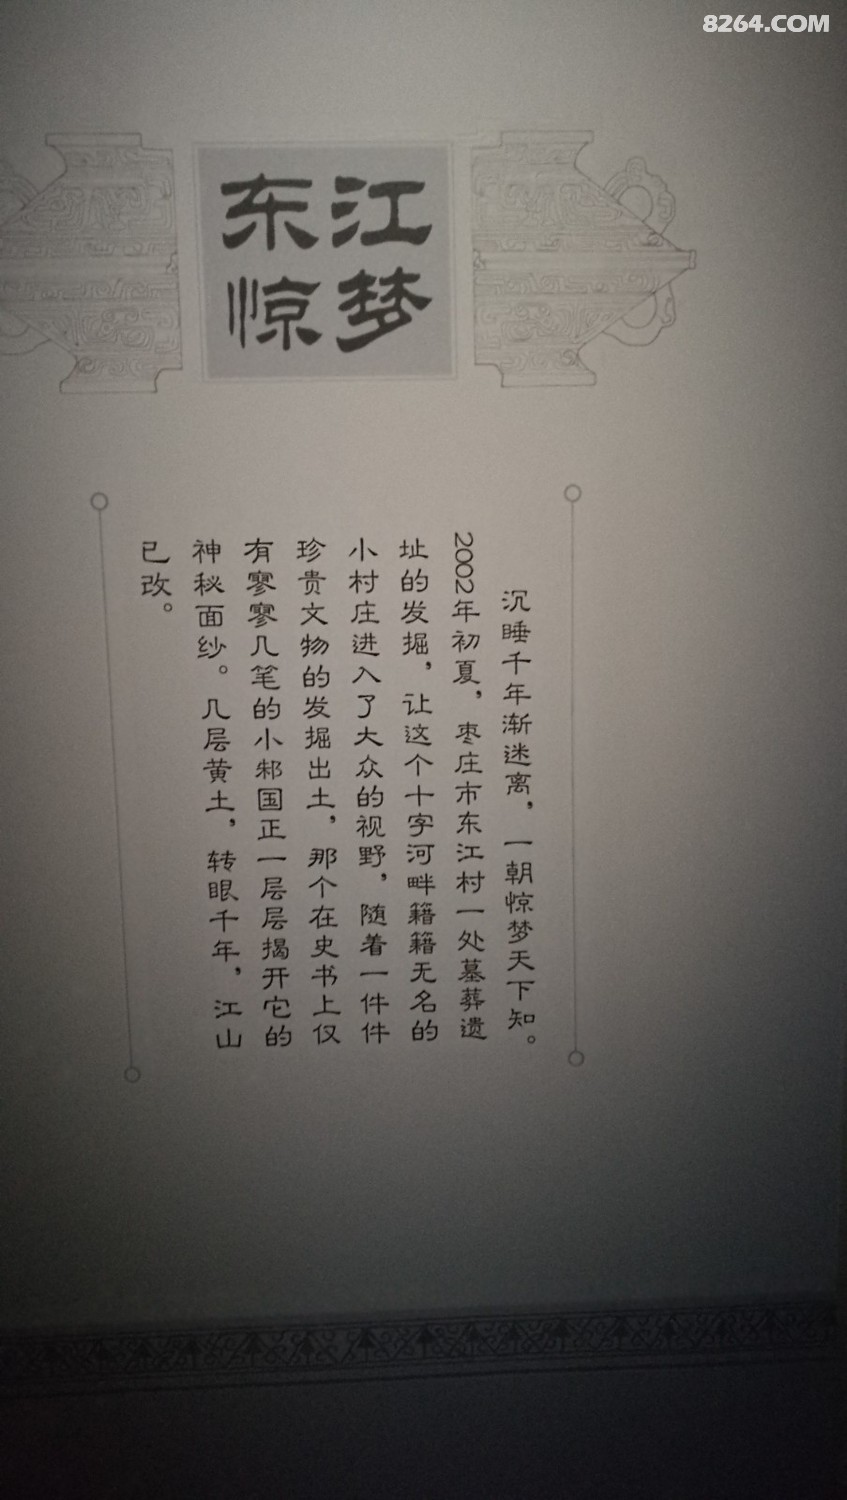 8264.COM
东江
惊梦
沉睡千年渐迷离，一朝惊梦天下知。
2002年初夏，枣庄市东江村一处墓葬遗
址的发掘，让这个十字河畔籍籍无名的
小村庄进入了大众的视野，随着一件件
珍贵文物的发掘出土，那个在史书上仅
有寥寥几笔的小邾国正一层层揭开它的
神秘面纱。几层黄土，转眼千年，江山
已改。